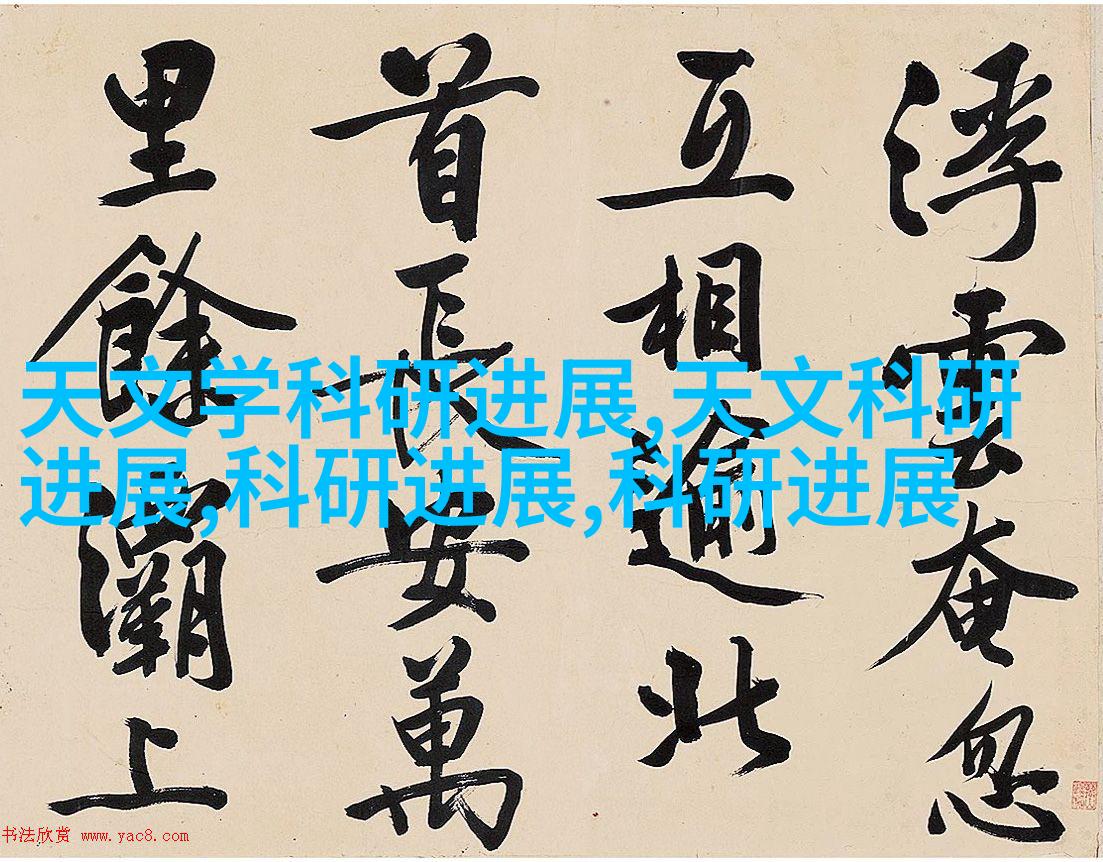 浮雲奄忽
互相逾北
首長安萬
里餘灞上
天文学科研进展,天文科研
进展,科研进展,科研进展
书法欣赏 www.yac8.com